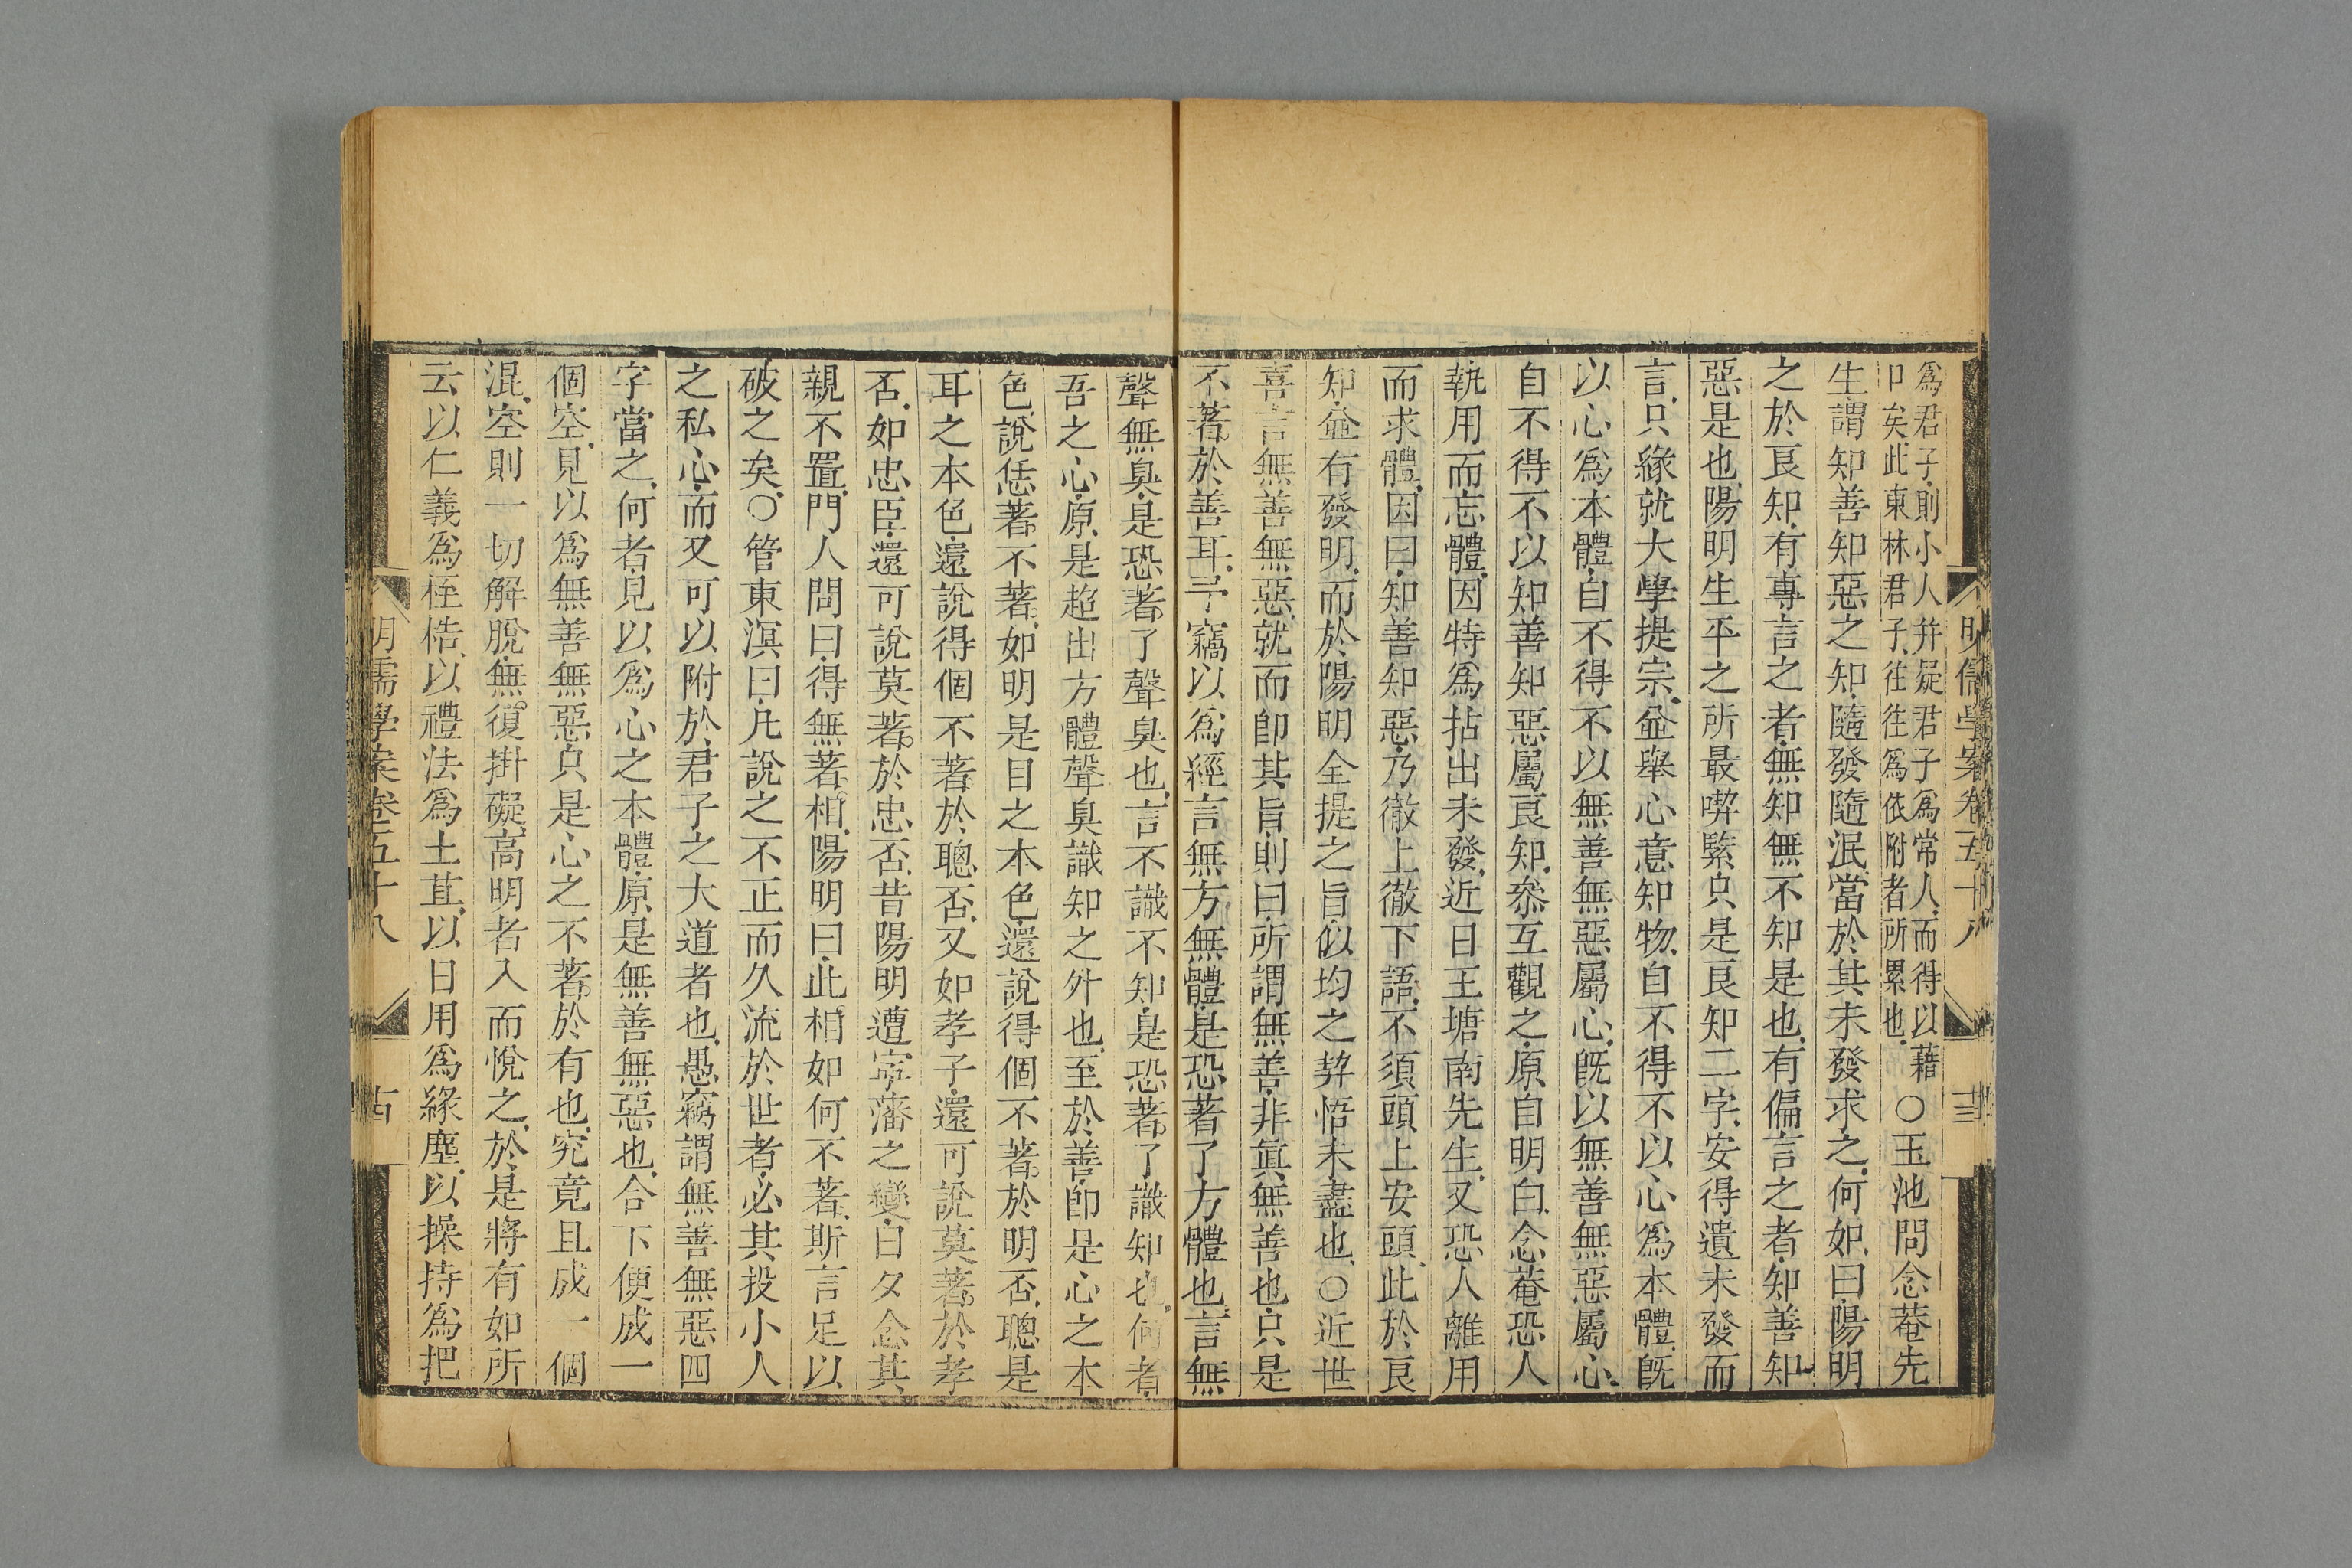 明儒學案卷五十八
爲君子則小人幷疑君子爲常人而得以藉
口矣此東林君子往往爲依附者所累也
○玉池問念菴先
生謂知善知惡之知隨發隨泯當於其未發求之何如曰陽明
之於良知有專言之者無知無不知是也有偏言之者知善知
惡是也陽明生平之所最喫緊只是良知二字安得遺未發而
言只緣就大學提宗並舉心意知物自不得不以心爲本體旣
以心爲本體自不得不以無善無惡屬心旣以無善無惡屬心
自不得不以知善知惡屬良知叅互觀之原自明白念菴恐人
執用而忘體因特爲拈出未發近日王塘南先生又恐人離用
而求體因曰知善知惡乃徹上徹下語不須頭上安頭此於良
知並有發明而於陽明全提之旨似均之契悟未盡也○近世
喜言無善無惡就而卽其旨則曰所謂無善非眞無善也只是
不著於善耳予竊以爲經言無方無體是恐著了方體也言無
聲無臭是恐著了聲臭也言不識不知是恐著了識知也何者
吾之心原是超出方體聲臭識知之外也至於善卽是心之本
色說恁著不著如明是目之本色還說得個不著於明否聰是
耳之本色還說得個不著於聰否又如孝子還可說莫著於孝
否如忠臣還可說莫著於忠否昔陽明遭寧藩之變日夕念其
親不置門人問曰得無著相陽明曰此相如何不著斯言足以
破之矣○管東溟曰凡說之不正而久流於世者必其投小人
之私心而又可以附於君子之大道者也愚竊謂無善無惡四
字當之何者見以爲心之本體原是無善無惡也合下便成一
個空見以爲無善無惡只是心之不著於有也究竟且成一個
混空則一切解脫無復掛礙高明者入而悅之於是將有如所
云以仁義爲桎梏以禮法爲土苴以日用爲緣塵以操持爲把
明儒學案卷五十八